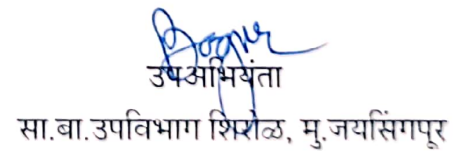 उपअभियंता
सा.बा.उपविभाग शिरोळ, मु.जयसिंगपूर